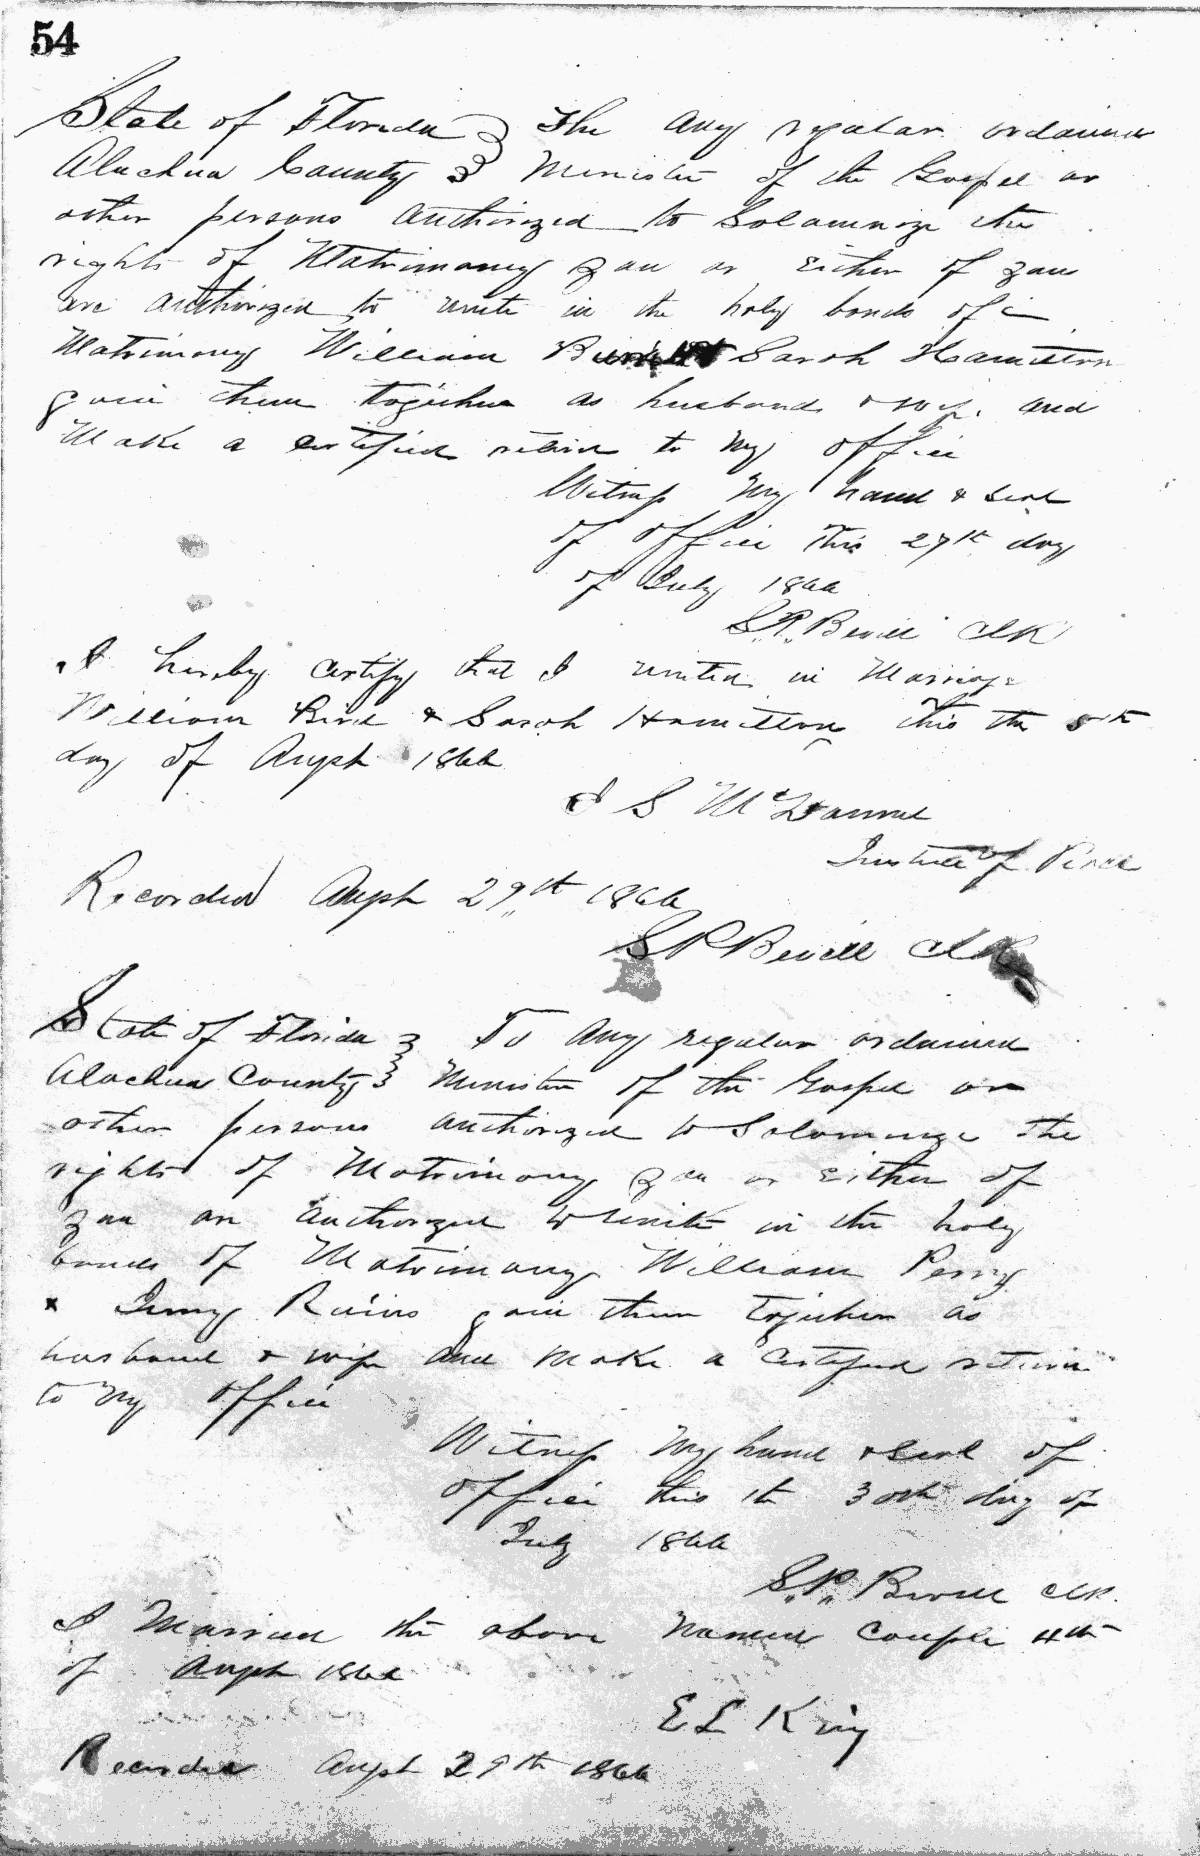 54
State of Florida } The any regular ordained
Alachua County } Minister of the Gospel or
other persons authorized to Solamnize the
rights of Matrimony you or Either of you
are authorized to unite in the holy bonds of
Matrimony William Sarah Hamilton
join them together as husband & wife and
Make a certified return to my office
Witness my hand & seal
of office this 27th day
of July 1866
S.P. Bevill Clk
I hereby certify that I united in Marriage
William Bird & Sarah Hamilton this the 5th
day of Augst 1866
J S McDannel
Justice of Peace
Recorded Augst 29th 1866
S P Bevill Clk
State of Florida } To Any regular ordained
Alachua County } Minister of the Gospel or
other persons authorized to Solomnize the
rights of Matrimony you or Either of
you are authorized to Unite in the holy
bonds of Matrimony William Perry
& Jinny Rains join them together as
husband & wife and Make a certified return
to my office
Witness My hand & Seal of
office this th 30th day of
July 1866
S.P. Bevill Clk.
I Married the above named couple 4th
of Augst 1866
E L King
Recorded Augst 29th 1866